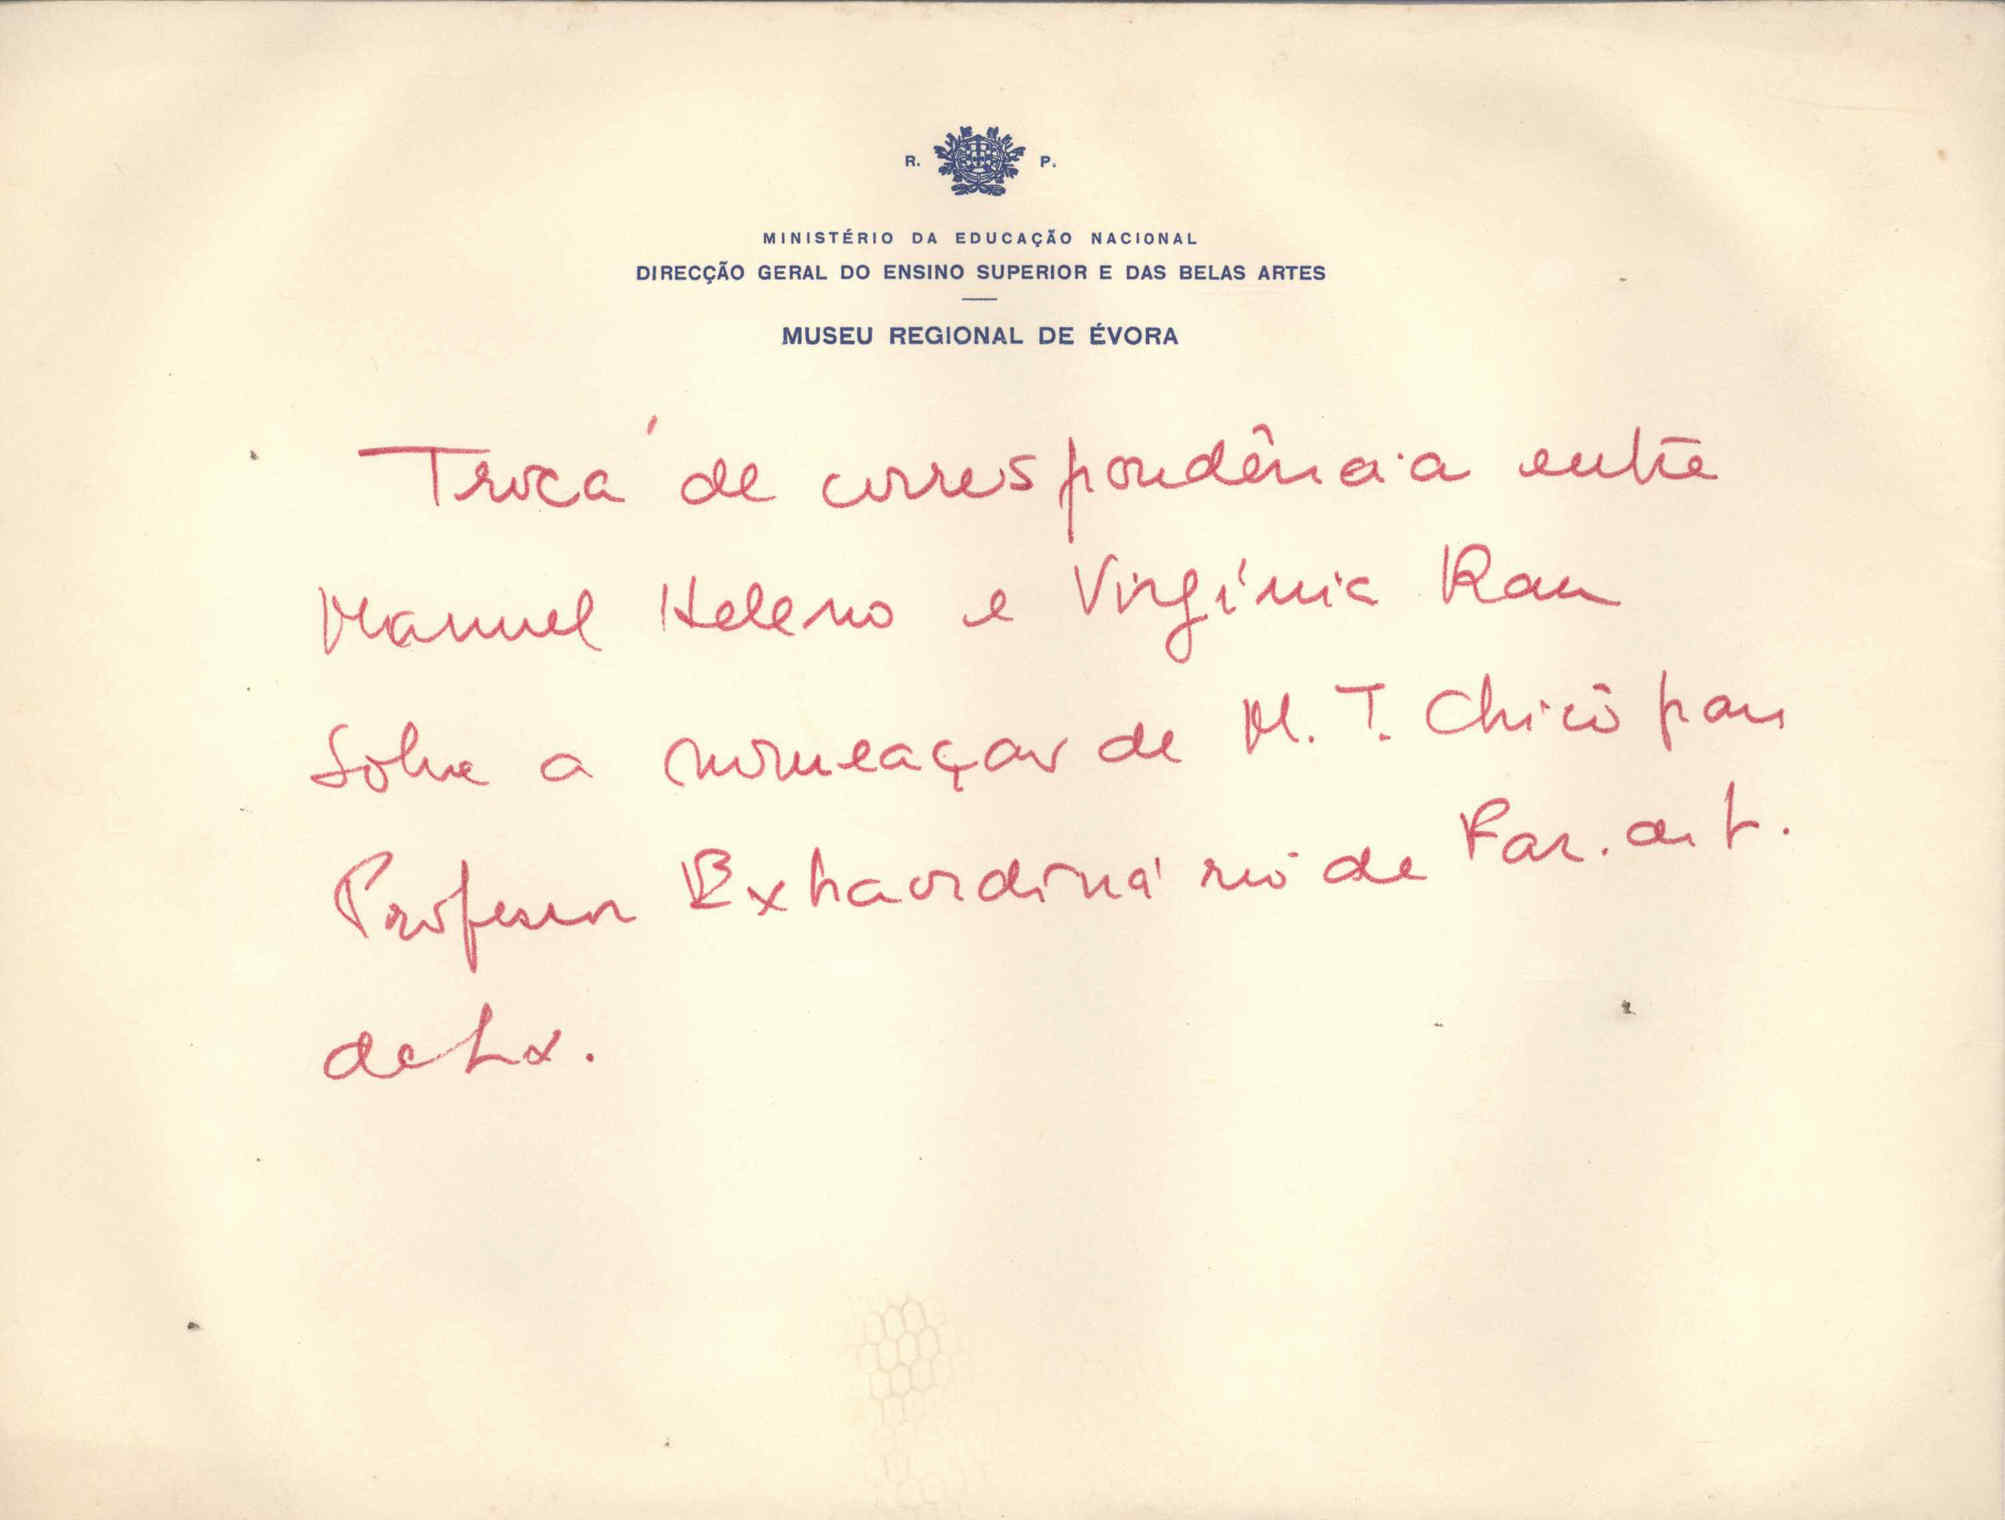 R. P.
MINISTÉRIO DA EDUCAÇÃO NACIONAL
DIRECÇÃO GERAL DO ENSINO SUPERIOR E DAS BELAS ARTES
MUSEU REGIONAL DE ÉVORA
Troca de correspondência entre
Manuel Heleno e Virgínia Rau
sobre a nomeação de M. T. Chicó para
Professor Extraordinário de
de Lx.